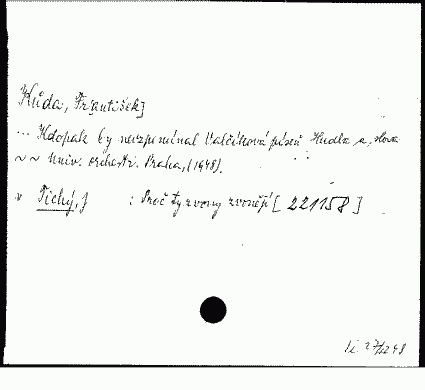 Kůda, Fr[antišek]
... Kdopak by nevzpomínal Valčíková píseň Hudba a slova
~ ~ Univ. orchestr. Praha, (1948).
v Tichý, J : Proč ty zvony zvonějí [221158]
li 27/12 48